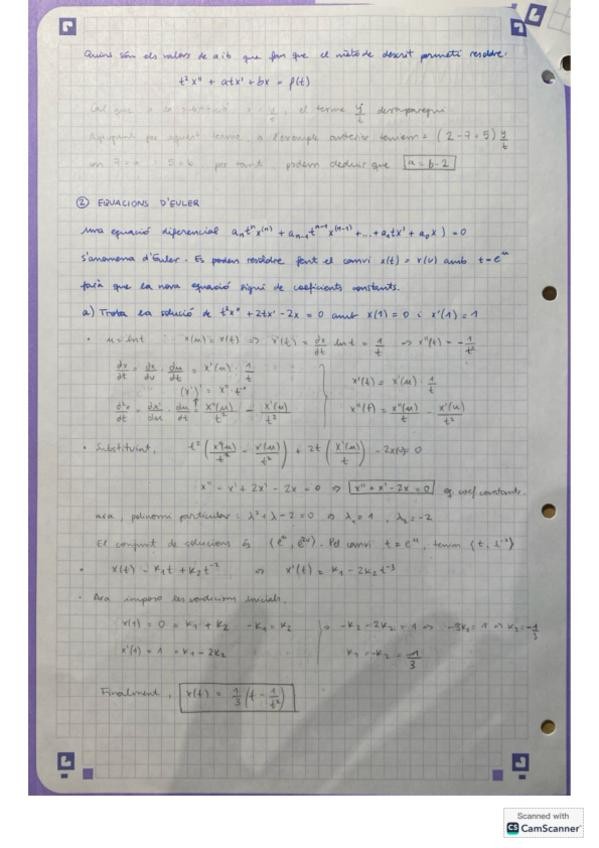 Quins són els valors de a i b que fan que el mètode descrit permeti resoldre:
t²x'' + atx' + bx = f(t)
el terme y/t desaparegui
per aquest terme, a l'exemple anterior teníem = (2-7+5) y/t
on 7=a 5=b per tant, podem deduir que a = b-2
② EQUACIONS D'EULER
Una equació diferencial aₙtⁿx⁽ⁿ⁾ + aₙ₋₁tⁿ⁻¹x⁽ⁿ⁻¹⁾ + ... + a₁tx' + a₀x ) = 0
s'anomena d'Euler. Es poden resoldre fent el canvi x(t) = v(u) amb t = eᵘ
farà que la nova equació sigui de coeficients constants.
a) Troba la solució de t²x'' + 2tx' - 2x = 0 amb x(1) = 0 i x'(1) = 1
• u = ln t x(u) = x(t) => x'(t) = dx/dt ln t = 1/t => x''(t) = -1/t²
dx/dt = dx/du · du/dt = x'(u) · 1/t
(x')' = x'' · t⁻¹
x'(t) = x'(u) · 1/t
x''(u)/t² - x'(u)/t²
x''(t) = x''(u)/t² - x'(u)/t²
• Substituint, t² ( x''(u)/t² - x'(u)/t² ) + 2t ( x'(u)/t ) - 2x(u) = 0
x'' - x' + 2x' - 2x = 0 => x'' + x' - 2x = 0 eq. coef constants.
ara, polinomi particular: λ² + λ - 2 = 0 => λ₁ = 1, λ₂ = -2
El conjunt de solucions és (eᵘ, e⁻²ᵘ). Pel canvi t = eᵘ, tenim (t, t⁻²)
• x(t) = K₁t + K₂t⁻² => x'(t) = K₁ - 2K₂t⁻³
• Ara imposo les condicions inicials.
x(1) = 0 = K₁ + K₂ -K₁ = K₂ => -K₂ - 2K₂ = 1 => -3K₂ = 1 => K₂ = -1/3
x'(1) = 1 = K₁ - 2K₂ K₁ = -K₂ = 1/3
Finalment, x(t) = 1/3 (t - 1/t²)
Scanned with
CS CamScanner